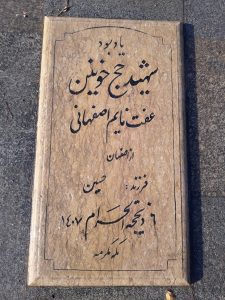 یادبود
شهید حج خونین
عفت نایم اصفهانی
از اصفهان
فرزند: حسین
۶ ذیحجة الحرام ۱۴۰۷
مکه مکرمه